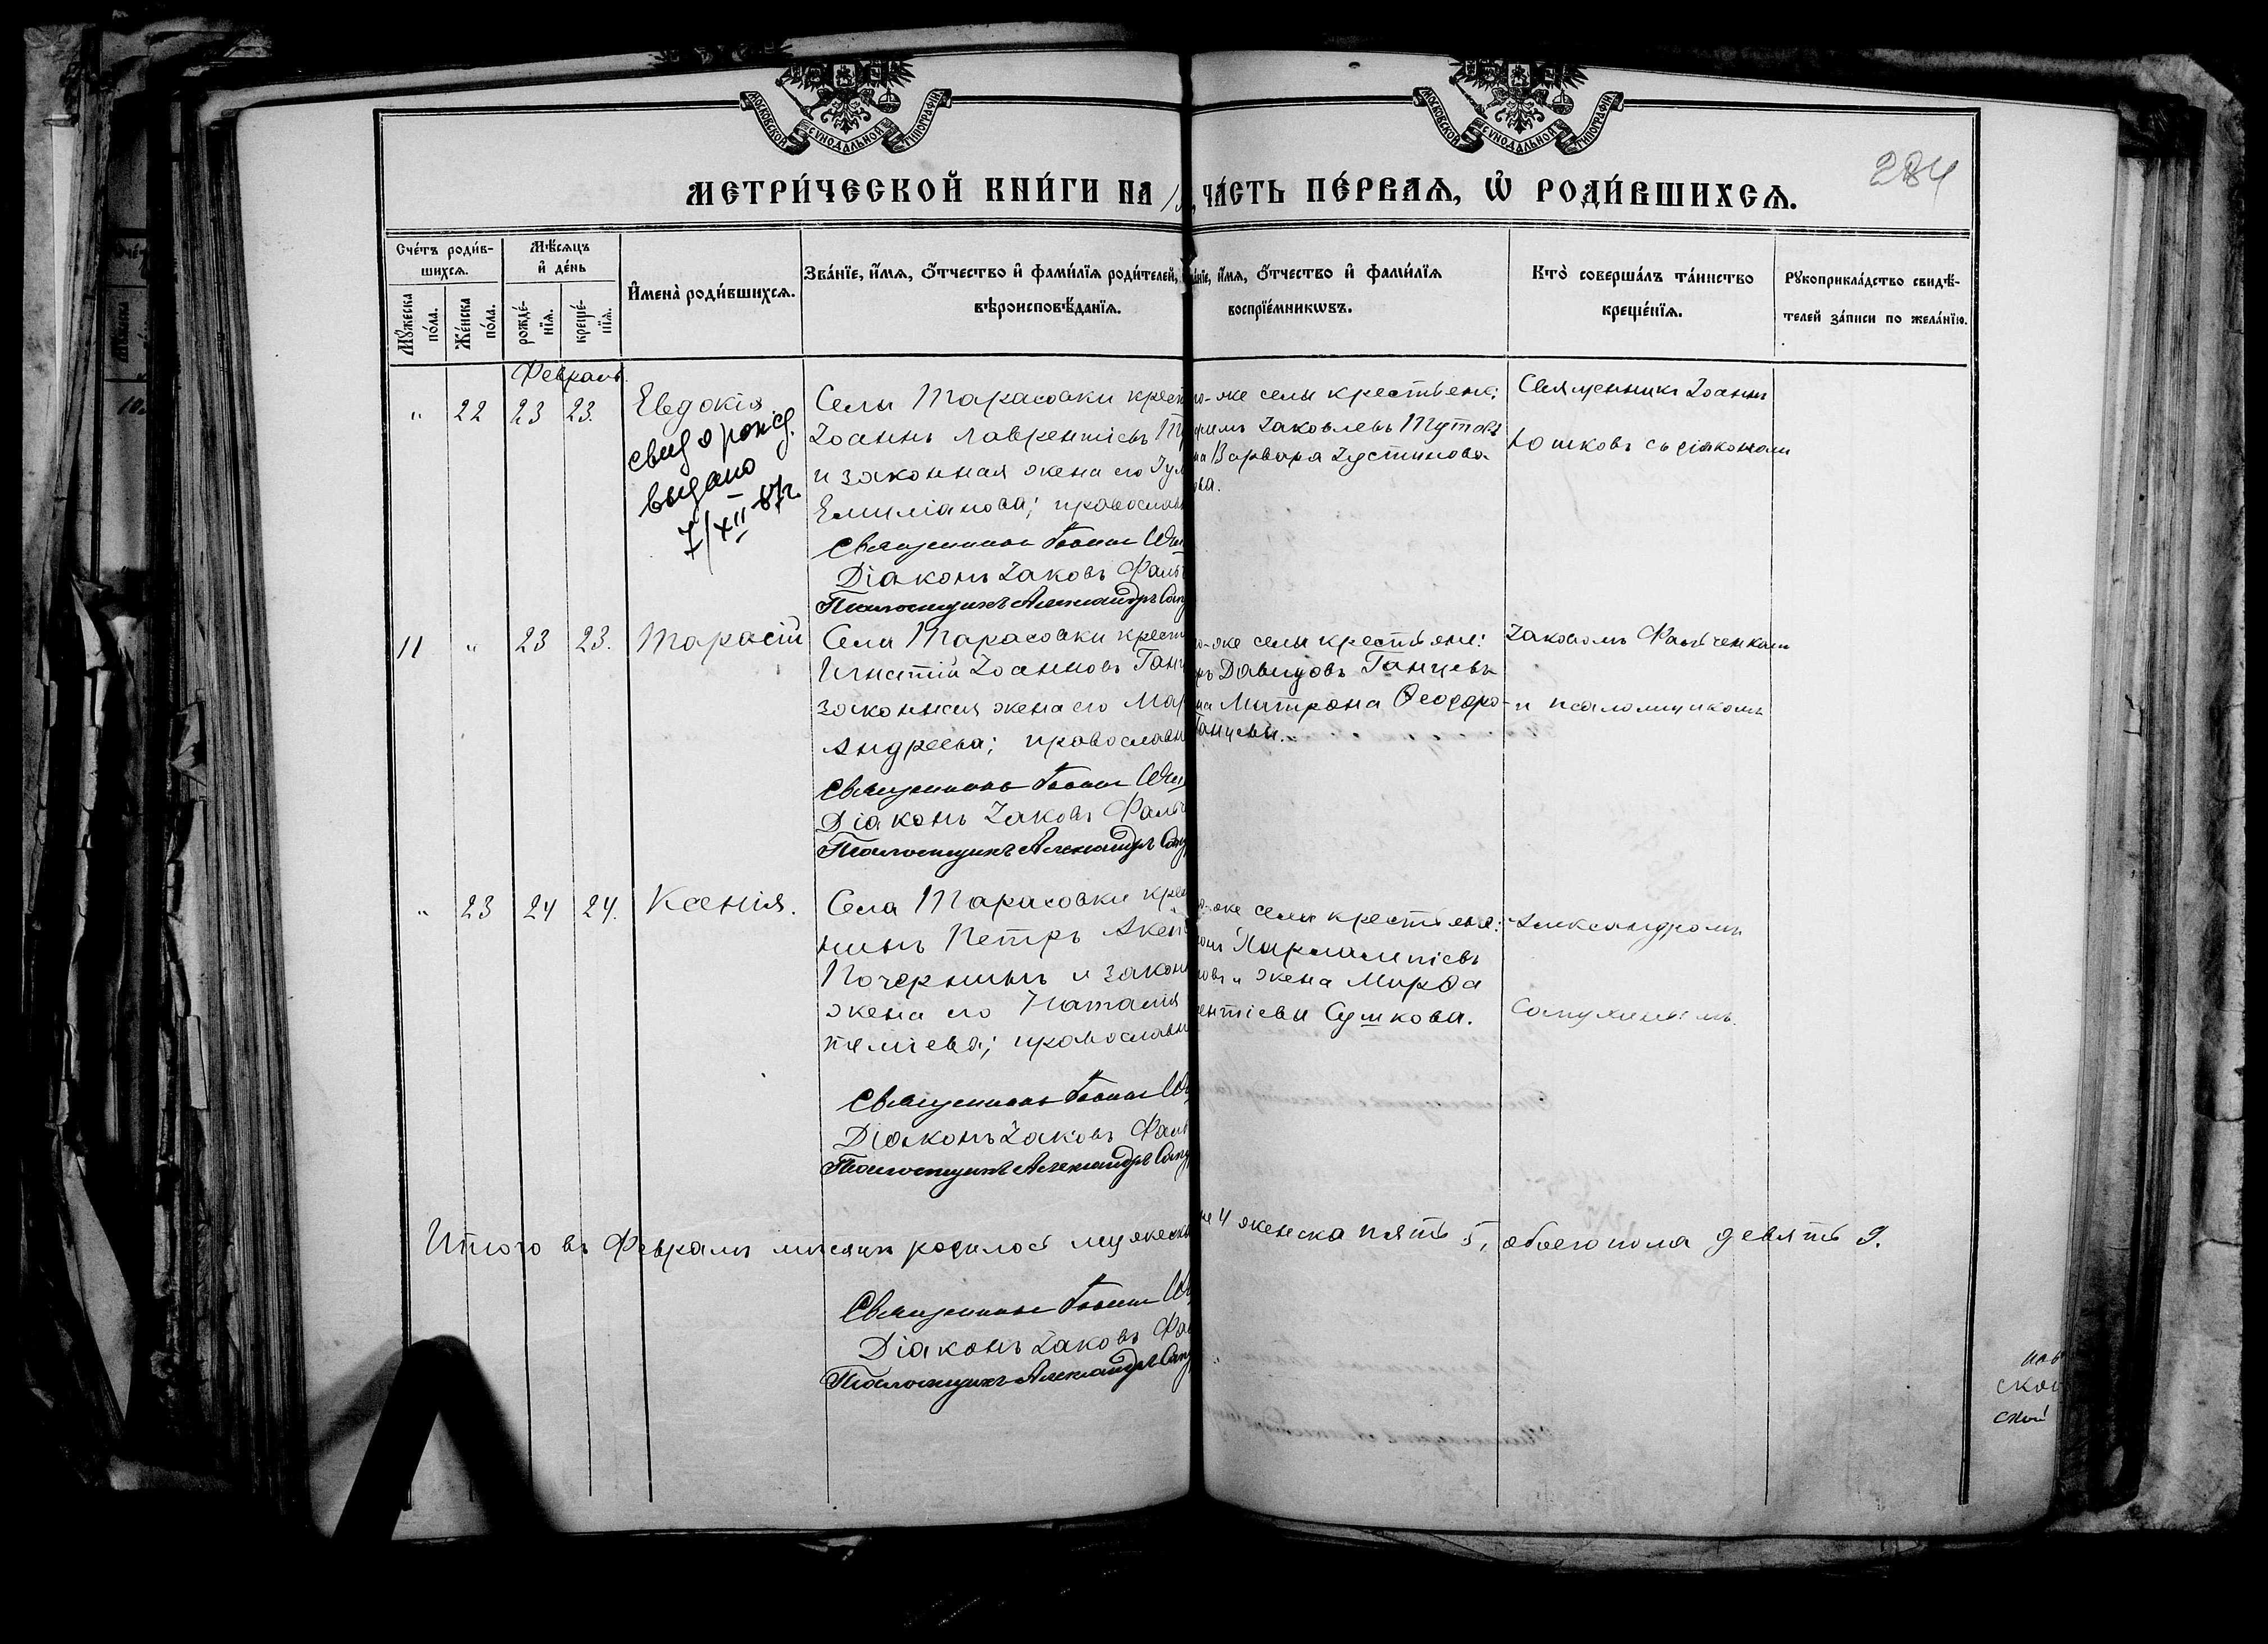 МОСКОВСКОЙ СУНОДАЛЬНОЙ ТИПОГРАФІИ
МОСКОВСКОЙ СУНОДАЛЬНОЙ ТИПОГРАФІИ
284
МЕТРИ́ЧЕСКОЙ КНИ́ГИ НА
ЧА́СТЬ ПЕ́РВАѦ, Ѡ҆ РОДИ́ВШИХСѦ.
Сче́тъ роди́в-
шихсѧ.
Мꙋ́жеска по́ла.
Же́нска по́ла.
Мѣ́сѧцъ
и҆ де́нь
рожде́-
нїѧ.
креще́-
нїѧ.
И҆мена̀ роди́вшихсѧ.
Зва́нїе, и҆́мѧ, ѻ҆́тчество и҆ фами́лїѧ роди́телей,
вѣроисповѣ́данїѧ.
а́нїе, и҆́мѧ, ѻ҆́тчество и҆ фами́лїѧ
воспрїе́мникѡвъ.
Кто̀ соверша́лъ та́инство
креще́нїѧ.
Рꙋкоприкла́дство свидѣ́-
телей за́писи по жела́нїю.
Февраль.
" 22 23 23. Евдокія
свид о рожд.
выдано
7/XII-87г
Села Тарасовки крест
Іоаннъ Лаврентіевъ Т
и законная жена его Іул
Емиліанова; православн
Священникъ Іоаннъ Юш
Діаконъ Іаковъ Фаль
Псаломщикъ Александръ Сап
о-же села крестьяне:
Іаковлевъ Тутовъ
на Варвара Іустинова
ова.
Священникъ Іоаннъ
Юшковъ съ діакономъ
11 " 23 23. Тарасій
Села Тарасовки крест
Игнатій Іоанновъ Ганц
законная жена его Мар
Андреева; православн
Священникъ Іоаннъ Юш
Діаконъ Іаковъ Фальч
Псаломщикъ Александръ Сап
о-же села крестьяне:
ъ Давидовъ Ганцевъ
на Матрона Ѳеодоро-
Ганцевы.
Іаковомъ Фальченкомъ
и псаломщикомъ
" 23 24 24. Ксенія.
Села Тарасовки кре
нинъ Петръ Акен
Почернинъ и закон
жена его Наталія
пиліева; православн
Священникъ Іоаннъ Ю
Діаконъ Іаковъ Фаль
Псаломщикъ Александръ Сап
о-же села крестьяне:
Харлампіевъ
овъ и жена Марѳа
ентіева Сушкова.
Александромъ
Сапухинымъ.
Итого въ Февралѣ мѣсяцѣ родилось мужеска
4 женска пять 5, обоего пола девять 9.
Священникъ Іоаннъ Ю
Діаконъ Іаковъ Фа
Псаломщикъ Александръ Сап
ской